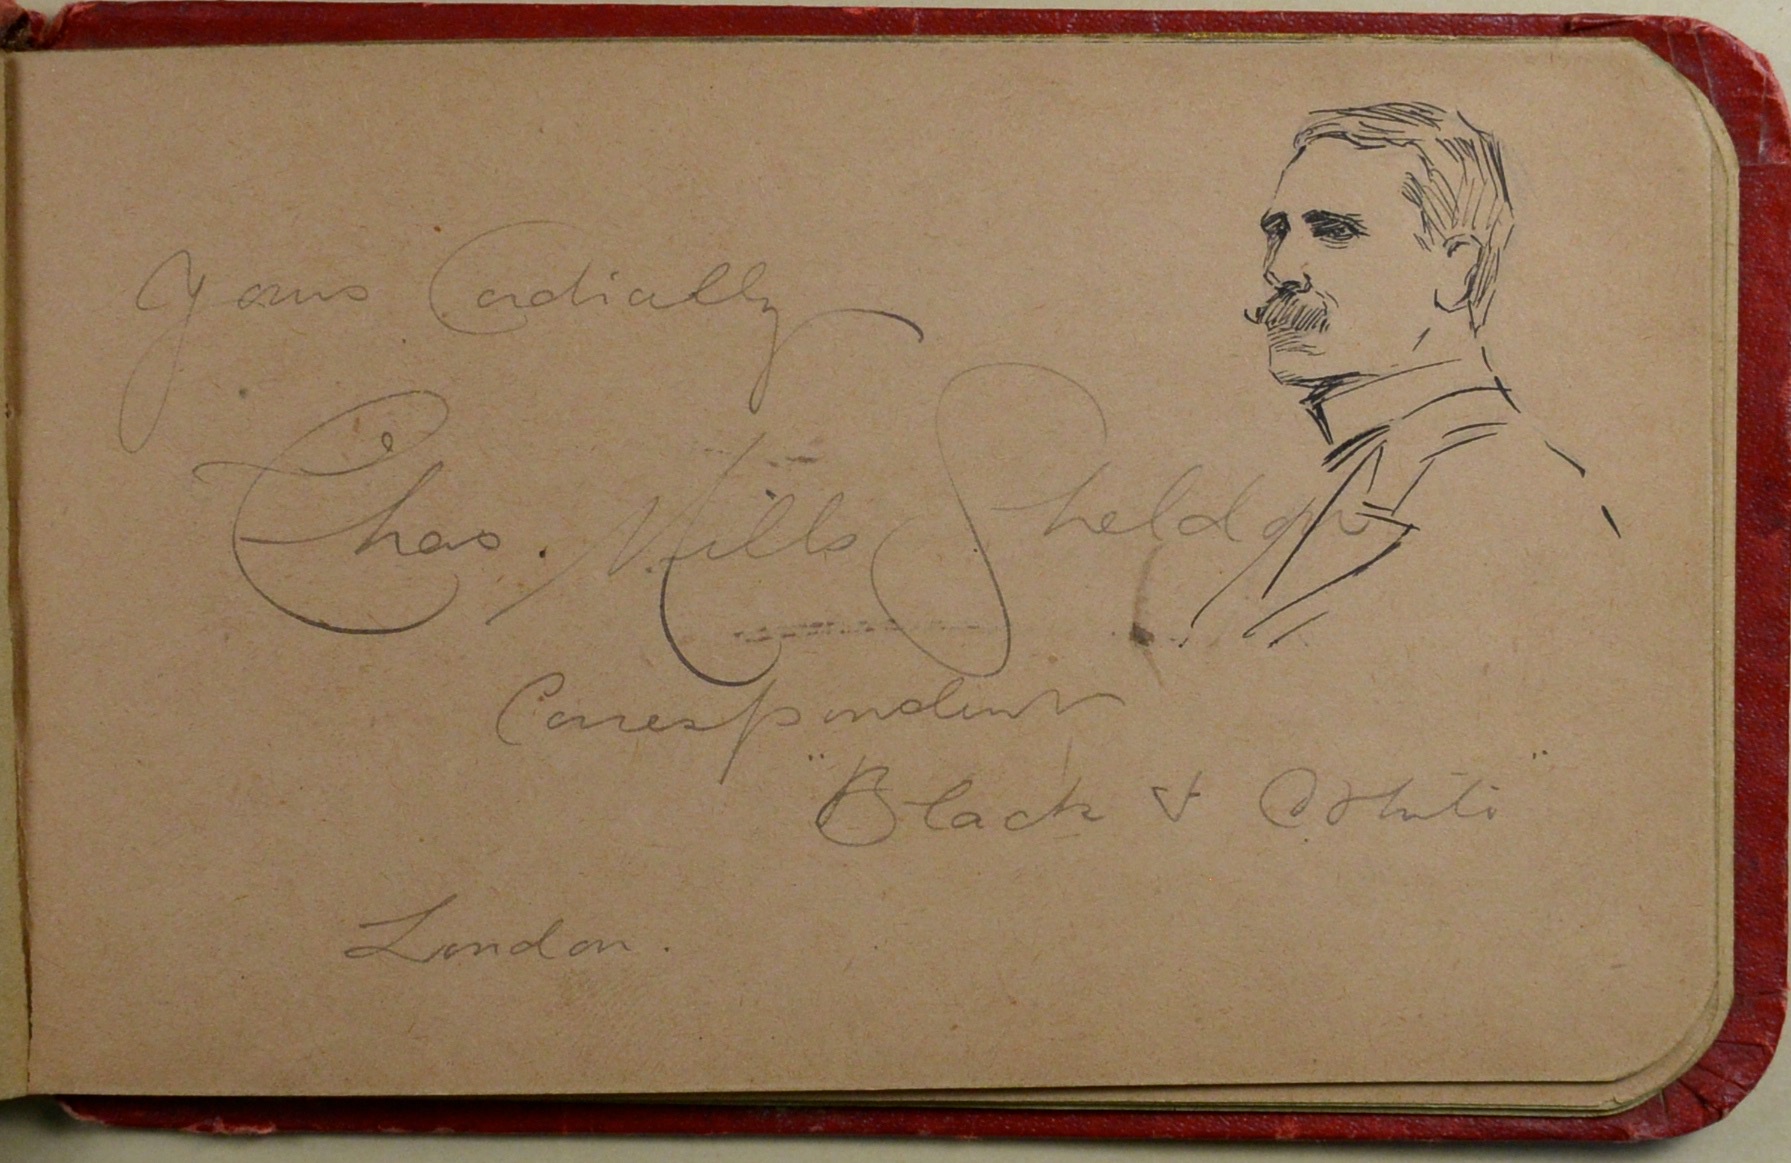 Yours Cordially
Chas. Mills Sheldon
Correspondent
"Black & White"
London.